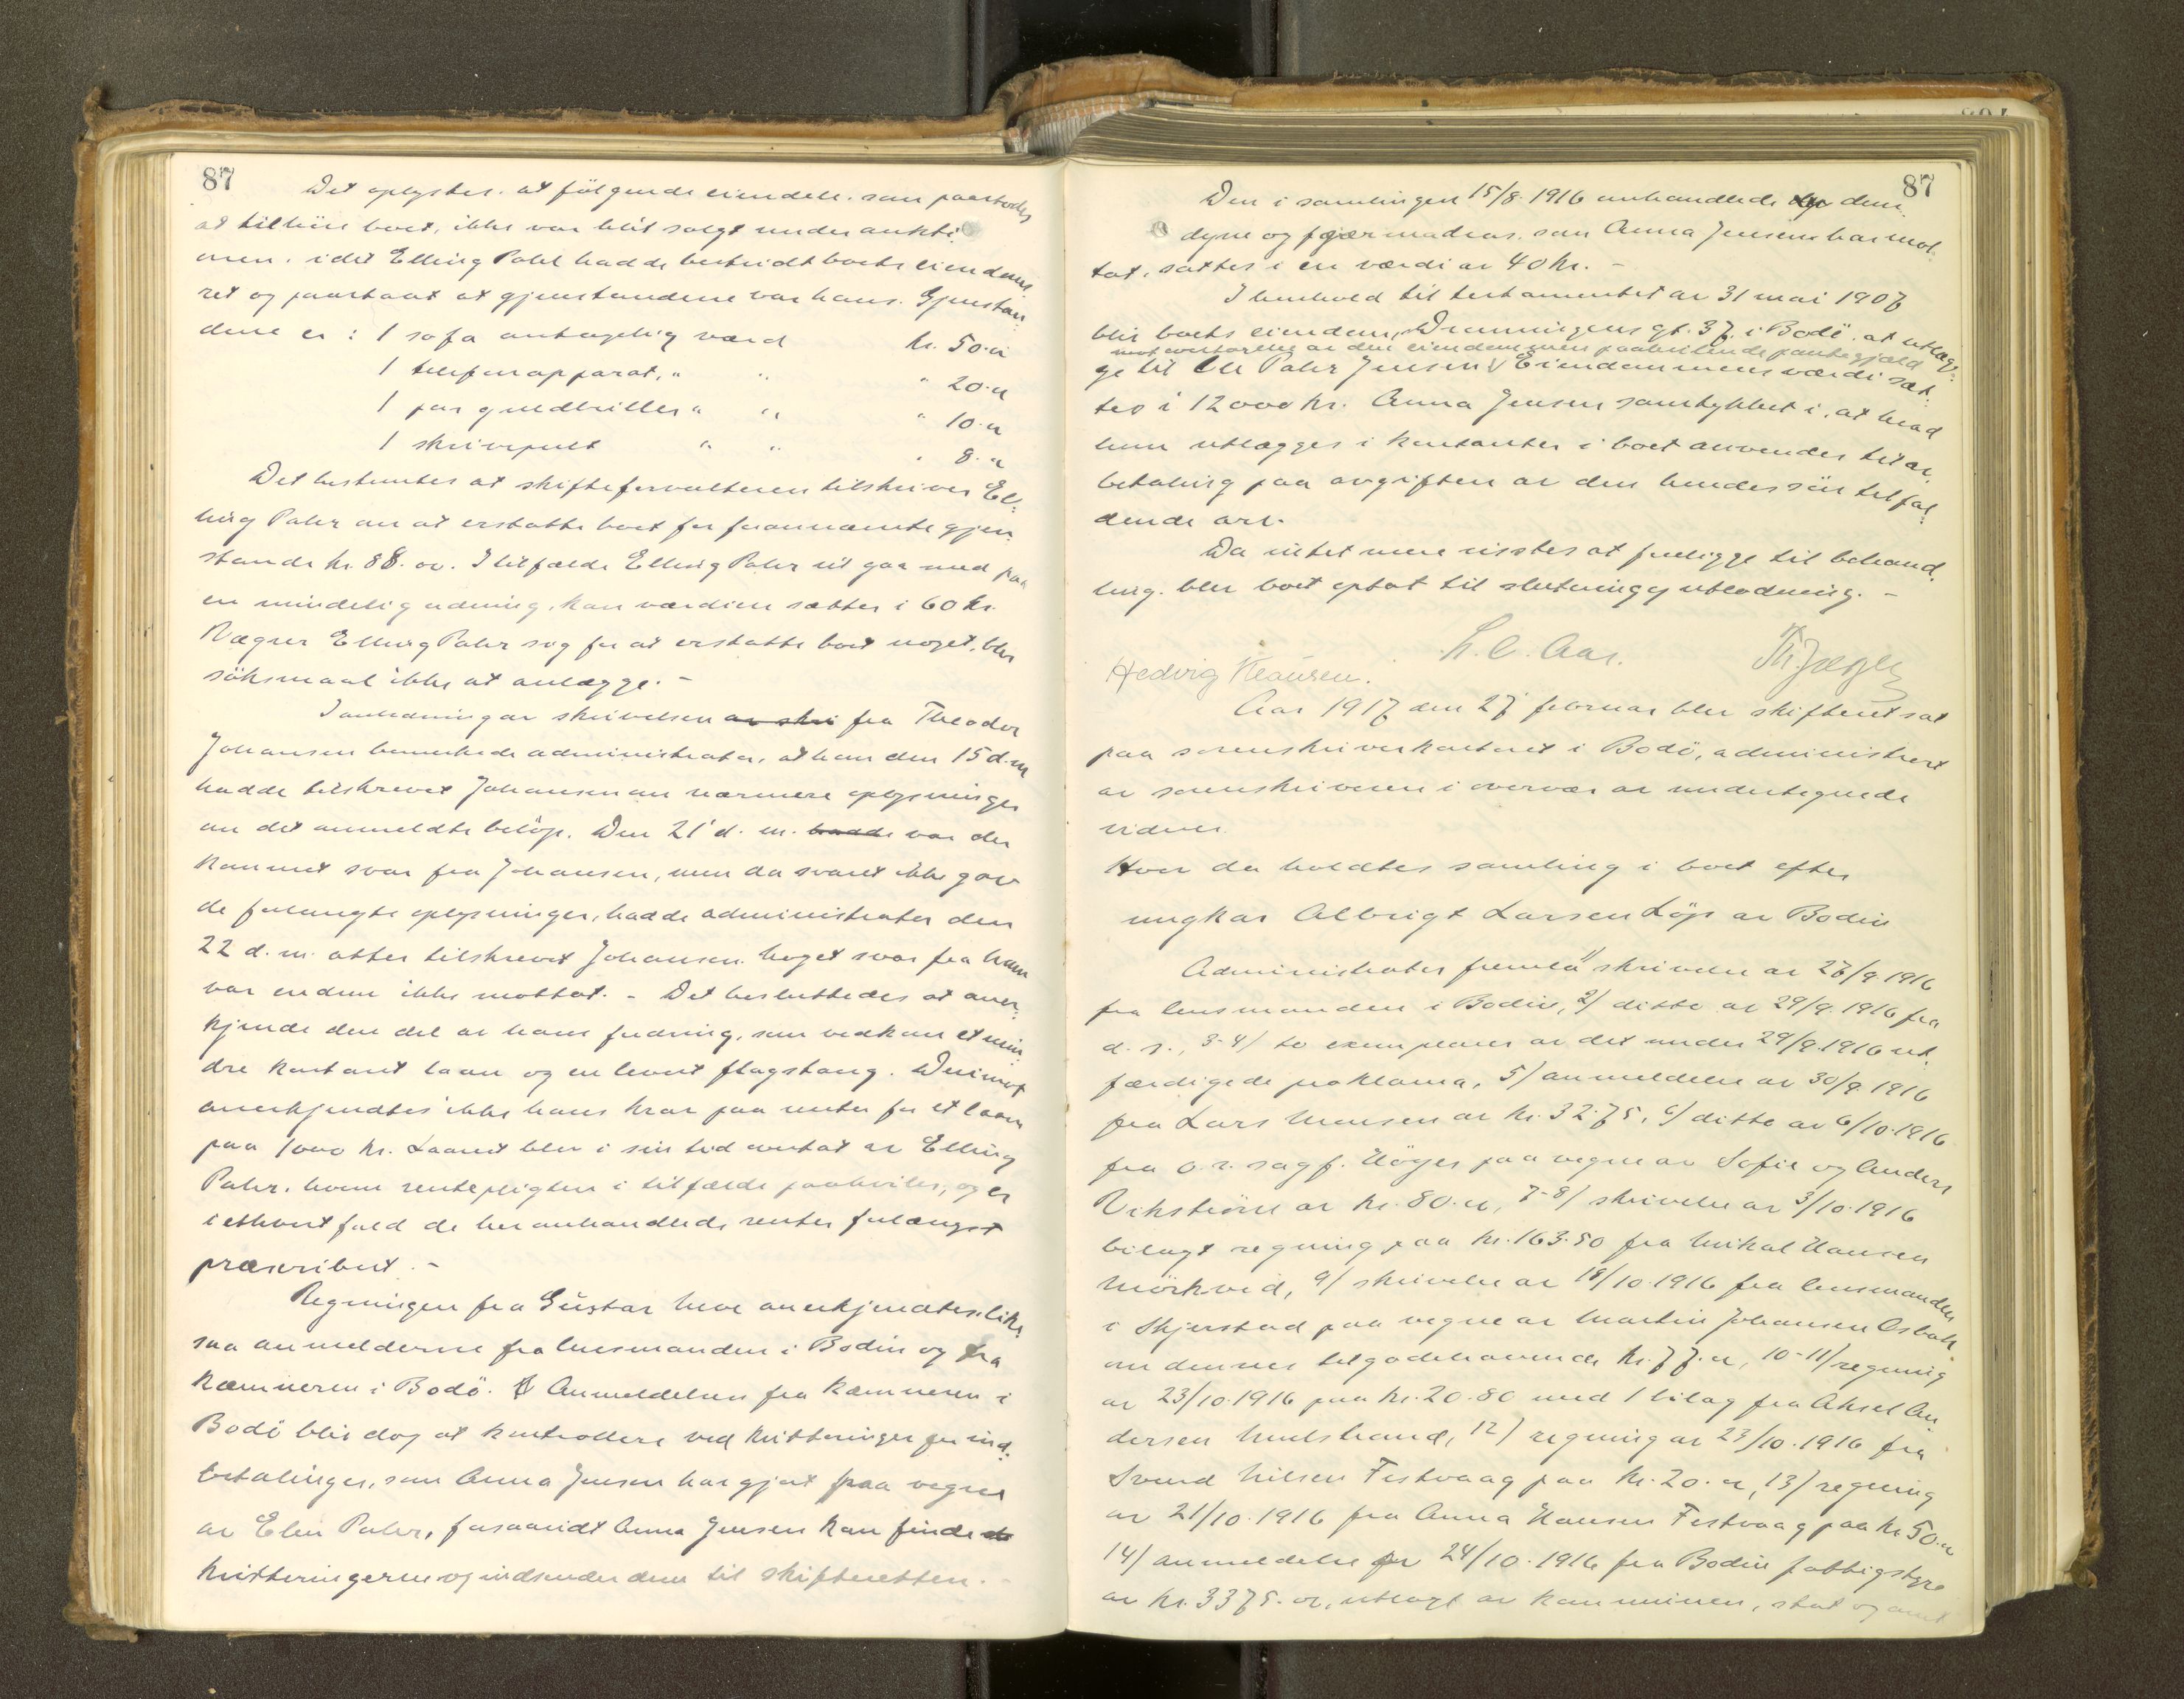 87
Det oplystes at følgende eiendele, som paastodes
at tilhøre boet, ikke var blit solgt under auktio-
nen, idet Elling Pahr hadde bestridt boets eiendoms
ret og paastaat at gjenstandene var hans. Gjenstan-
dene er: 1 sofa antagelig værd kr. 50.00
1 telefonapparat, " " " 20.00
1 par guldbriller " " " 10.00
1 skrivepult " " " 8.00
Det bestemtes at skifteforvalteren tilskriver El-
ling Pahr om at erstatte boet for forannævnte gjen-
stande kr. 88.00. I tilfælde Elling Pahr vil gaa med paa
en mindelig ordning, kan værdien sættes i 60 kr.
Vægrer Elling Pahr sig for at erstatte boet noget, blir
søksmaal ikke at anlægge. –
I anledning av skrivelsen av skri fra Theodor
Johansen bemerkede administrator, at han den 15 d.m.
hadde tilskrevet Johansen om nærmere oplysninger
om det anmeldte beløp. Den 21' d.m. hadde var der
kommet svar fra Johansen, men da svaret ikke gav
de forlangte oplysninger, hadde administrator den
22 d.m. atter tilskrevet Johansen. Noget svar fra ham
var endnu ikke mottat. – Det besluttedes at aner-
kjende den del av hans fordring, som vedkom et min-
dre kontant laan og en levert flagstang. Derimot
anerkjendtes ikke hans krav paa renter for et laan
paa 1000 kr. Laanet blev i sin tid overtat av Elling
Pahr, hvem rentepligten i tilfælde paahviler, og er
i ethvert fald de her omhandlede renter forlængst
præscribert. –
Regningen fra Gustav Moe anerkjendtes, like-
saa anmelderne fra lensmanden i Bodin og fra
kæmneren i Bodø. Anmeldelsen fra kæmneren i
Bodø blir dog at kontrollere ved kvitteringer for ind-
betalinger, som Anna Jensen har gjort paa vegne
av Elen Pahr, forsaavidt Anna Jensen kan finde
kvitteringerne og indsender dem til skifteretten. –
87
Den i samlingen 15/8 1916 omhandlede dun-
dyne og fjærmadras, som Anna Jensen har mot-
tat, sattes i en værdi av 40 kr. –
I henhold til testamentet av 31 mai 1907
blir boets eiendom, Dronningens gt. 37 i Bodø, at utlæg-
mot overtagelse av den eiendommen paahvilende pantegjæld
ge til Ole Pahr Jensen. Eiendommens værdi sæt-
tes i 12000 kr. Anna Jensen samtykket i, at hvad
hun utlægges i kontanter i boet anvendes til av-
betaling paa avgiften av den hendes søn tilfal-
dende arv.
Da intet mere visstes at foreligge til behand-
ling, blev boet optat til slutning og utlodning. –
L. C. Aas. Th. Jæger
Hedvig Klausen.
Aar 1917 den 27 februar blev skifteret sat
paa sorenskriverkontoret i Bodø, administrert
av sorenskriveren i overvær av undertegnede
vidner.
Hvor da holdtes samling i boet efter
ungkar Albrigt Larsen Løp av Bodin
Administrator fremla 1/ skrivelse av 26/9 1916
fra lensmanden i Bodin, 2/ ditto av 29/9. 1916 fra
d. s., 3-4/ to exemplarer av det under 29/9. 1916 ut-
færdigede proklama, 5/ anmeldelse av 30/9. 1916
fra Lars Monsen av kr. 32.75, 6/ ditto av 6/10.1916
fra o. r. sagf. Høyer paa vegne av Sofie og Anders
Vikstrøm av kr. 80.00, 7-8/ skrivelse av 3/10.1916
bilagt regning paa kr. 163.50 fra Mikal Hansen
Mörkved, 9/ skrivelse av 18/10 1916 fra lensmanden
i Skjerstad paa vegne av Martin Johansen Osbak
om dennes tilgodehavende kr. 77.00, 10-11/ regning
av 23/10.1916 paa kr. 20.80 med 1 bilag fra Aksel An-
dersen, 12/ regning av 23/10.1916 fra
Svend Nilsen Festvaag paa kr. 20.00, 13/ regning
av 21/10.1916 fra Anna Hansen Festvaag paa kr 50.00
14/ anmeldelse av 24/10.1916 fra Bodin fattigstyre
av kr. 3375.00, utlagt av kommunen, stat og amt